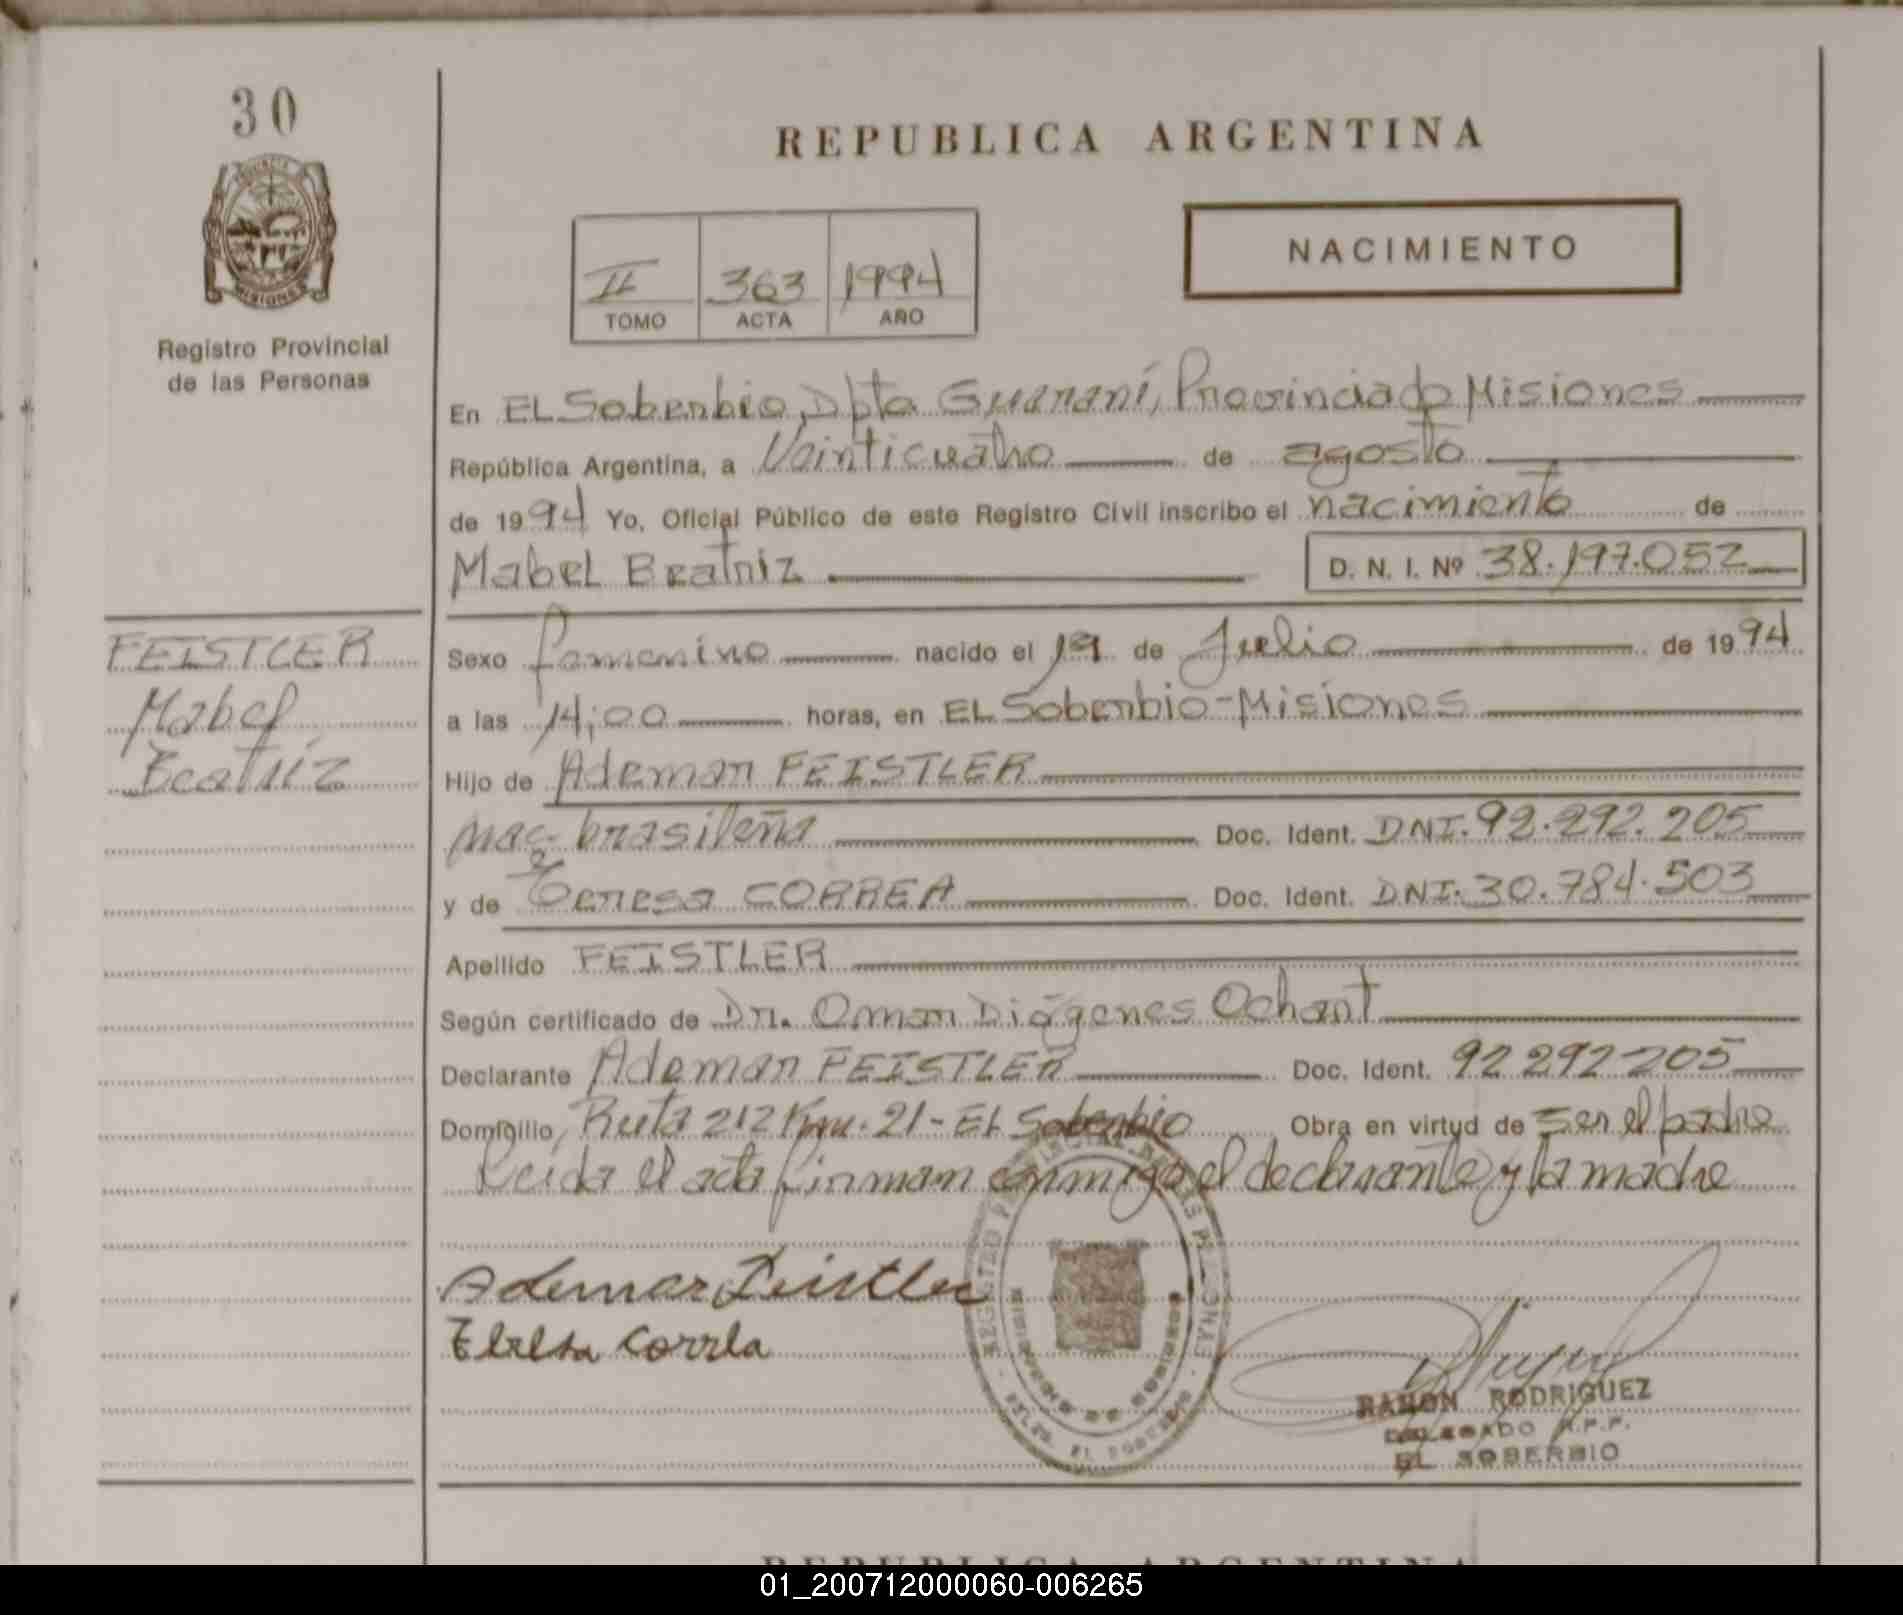 30
REPUBLICA ARGENTINA
PROVINCIA
MISIONES
Registro Provincial
de las Personas
NACIMIENTO
II 363 1994
TOMO ACTA AÑO
En EL Soberbio, Dpto Guaraní, Provincia de Misiones
República Argentina, a Veinticuatro de agosto
de 1994 Yo, Oficial Público de este Registro Civil inscribo el nacimiento de
Mabel Beatriz D. N. I. Nº 38.197.052
FEISTLER
Mabel
Beatriz
Sexo femenino nacido el 19 de Julio de 1994
a las 14;00 horas, en EL Soberbio-Misiones
Hijo de Ademar FEISTLER
nac. brasileña Doc. Ident. DNI. 92.292.205
y de Teresa CORREA Doc. Ident. DNI. 30.784.503
Apellido FEISTLER
Según certificado de Dr. Omar Diógenes Ochant
Declarante Ademar FEISTLER Doc. Ident. 92 292 205
Domicilio Ruta 212 Km. 21 - EL Soberbio Obra en virtud de ser el padre
Leida el acta firman conmigo el declarante y la madre
Ademar Feistler
Teresa Correa
REGISTRO PROVINCIAL DE LAS PERSONAS
RAMON RODRIGUEZ
DELEGADO R.P.P.
EL SOBERBIO
REPUBLICA ARGENTINA
01_200712000060-006265